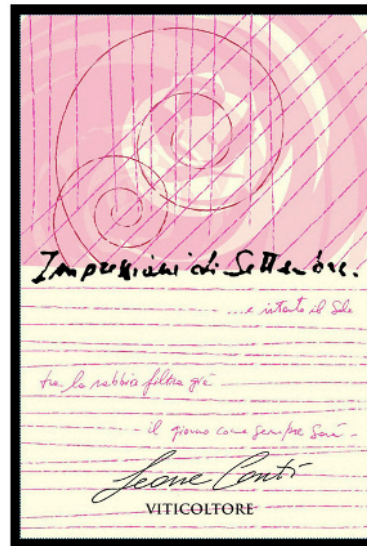 Impressioni di Settembre.
...e intanto il Sole
tra la nebbia filtra già
il giorno come sempre sarà -
Leone Conti
VITICOLTORE